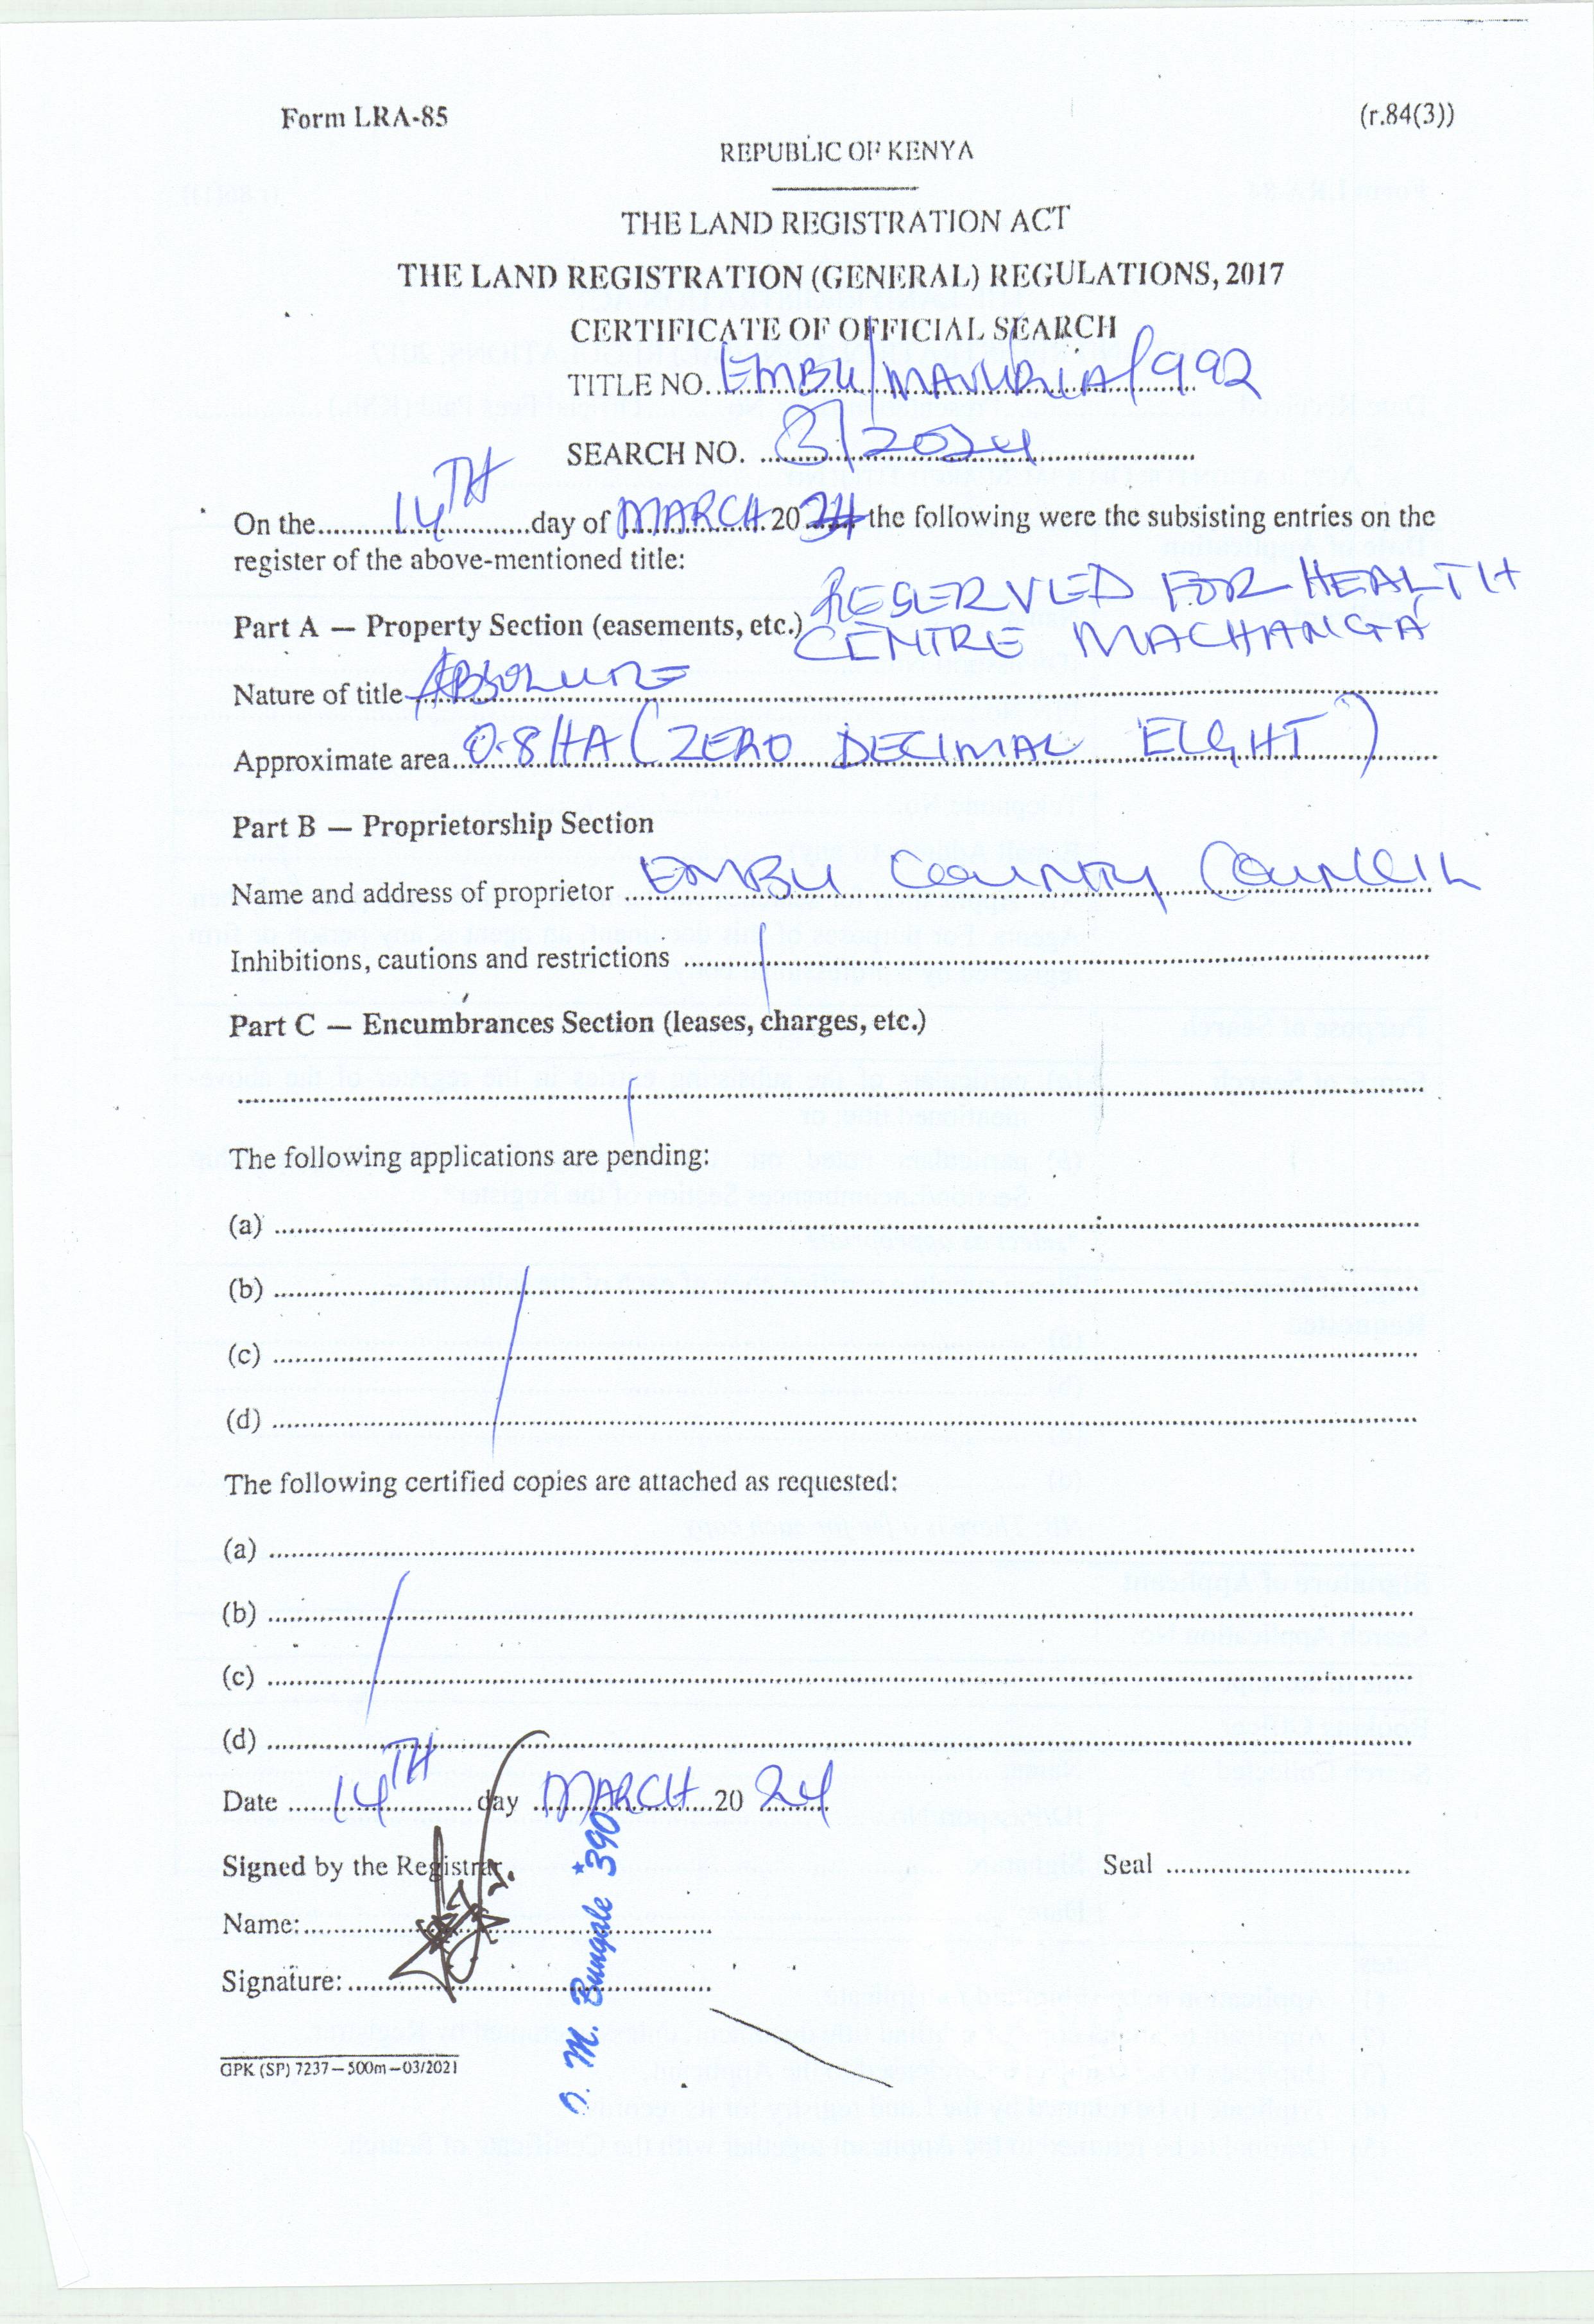 Form LRA-85 (r.84(3))
REPUBLIC OF KENYA
THE LAND REGISTRATION ACT
THE LAND REGISTRATION (GENERAL) REGULATIONS, 2017
CERTIFICATE OF OFFICIAL SEARCH
TITLE NO. EMBU/MAVURIA/992
SEARCH NO. 3/2024
On the 14TH day of MARCH 2024 the following were the subsisting entries on the
register of the above-mentioned title:
Part A — Property Section (easements, etc.) RESERVED FOR HEALTH
CENTRE MACHANGA
Nature of title ABSOLUTE
Approximate area 0.8HA (ZERO DECIMAL EIGHT)
Part B — Proprietorship Section
Name and address of proprietor EMBU COUNTY COUNCIL
Inhibitions, cautions and restrictions
Part C — Encumbrances Section (leases, charges, etc.)
The following applications are pending:
(a)
(b)
(c)
(d)
The following certified copies are attached as requested:
(a)
(b)
(c)
(d)
Date 14TH day MARCH 20 24
Signed by the Registrar. Seal
Name:
Signature:
M. Bungale *390
GPK (SP) 7237—500m—03/2021